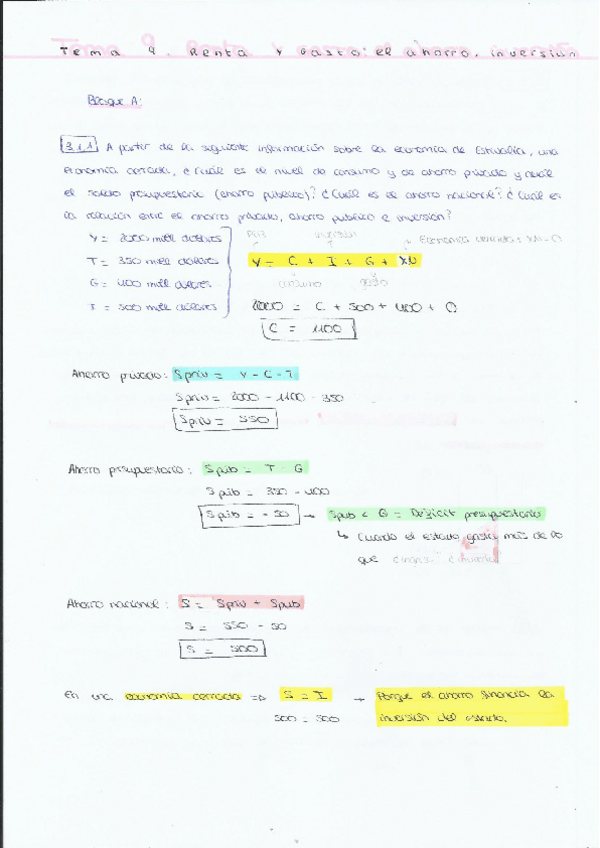 Tema 9. Renta y Gasto: el ahorro. inversión
Bloque A:
3.1.1 A partir de la siguiente información sobre la economía de Estivalia, una
economía cerrada, ¿Cuál es el nivel de consumo y de ahorro privado y cuál
el saldo presupuestario (ahorro público)? ¿Cuál es el ahorro nacional? ¿Cuál es
la relación entre el ahorro privado, ahorro público e inversión?
Y = 2000 mill dólares
T = 350 mill dólares
G = 400 mill dólares
I = 500 mill dólares
inversión
Economía cerrada: XN = 0
Y = C + I + G + XN
consumo gasto
2000 = C + 500 + 400 + 0
C = 1100
Ahorro privado: Spriv = Y - C - T
Spriv = 2000 - 1100 - 350
Spriv = 550
Ahorro presupuestario: Spub = T - G
Spub = 350 - 400
Spub = - 50 → Spub < G = Déficit presupuestario
↳ Cuando el estado gasta más de lo
que
Ahorro nacional: S = Spriv + Spub
S = 550 - 50
S = 500
En una economía cerrada => S = I → Porque el ahorro financia la
500 = 500 inversión del estado.